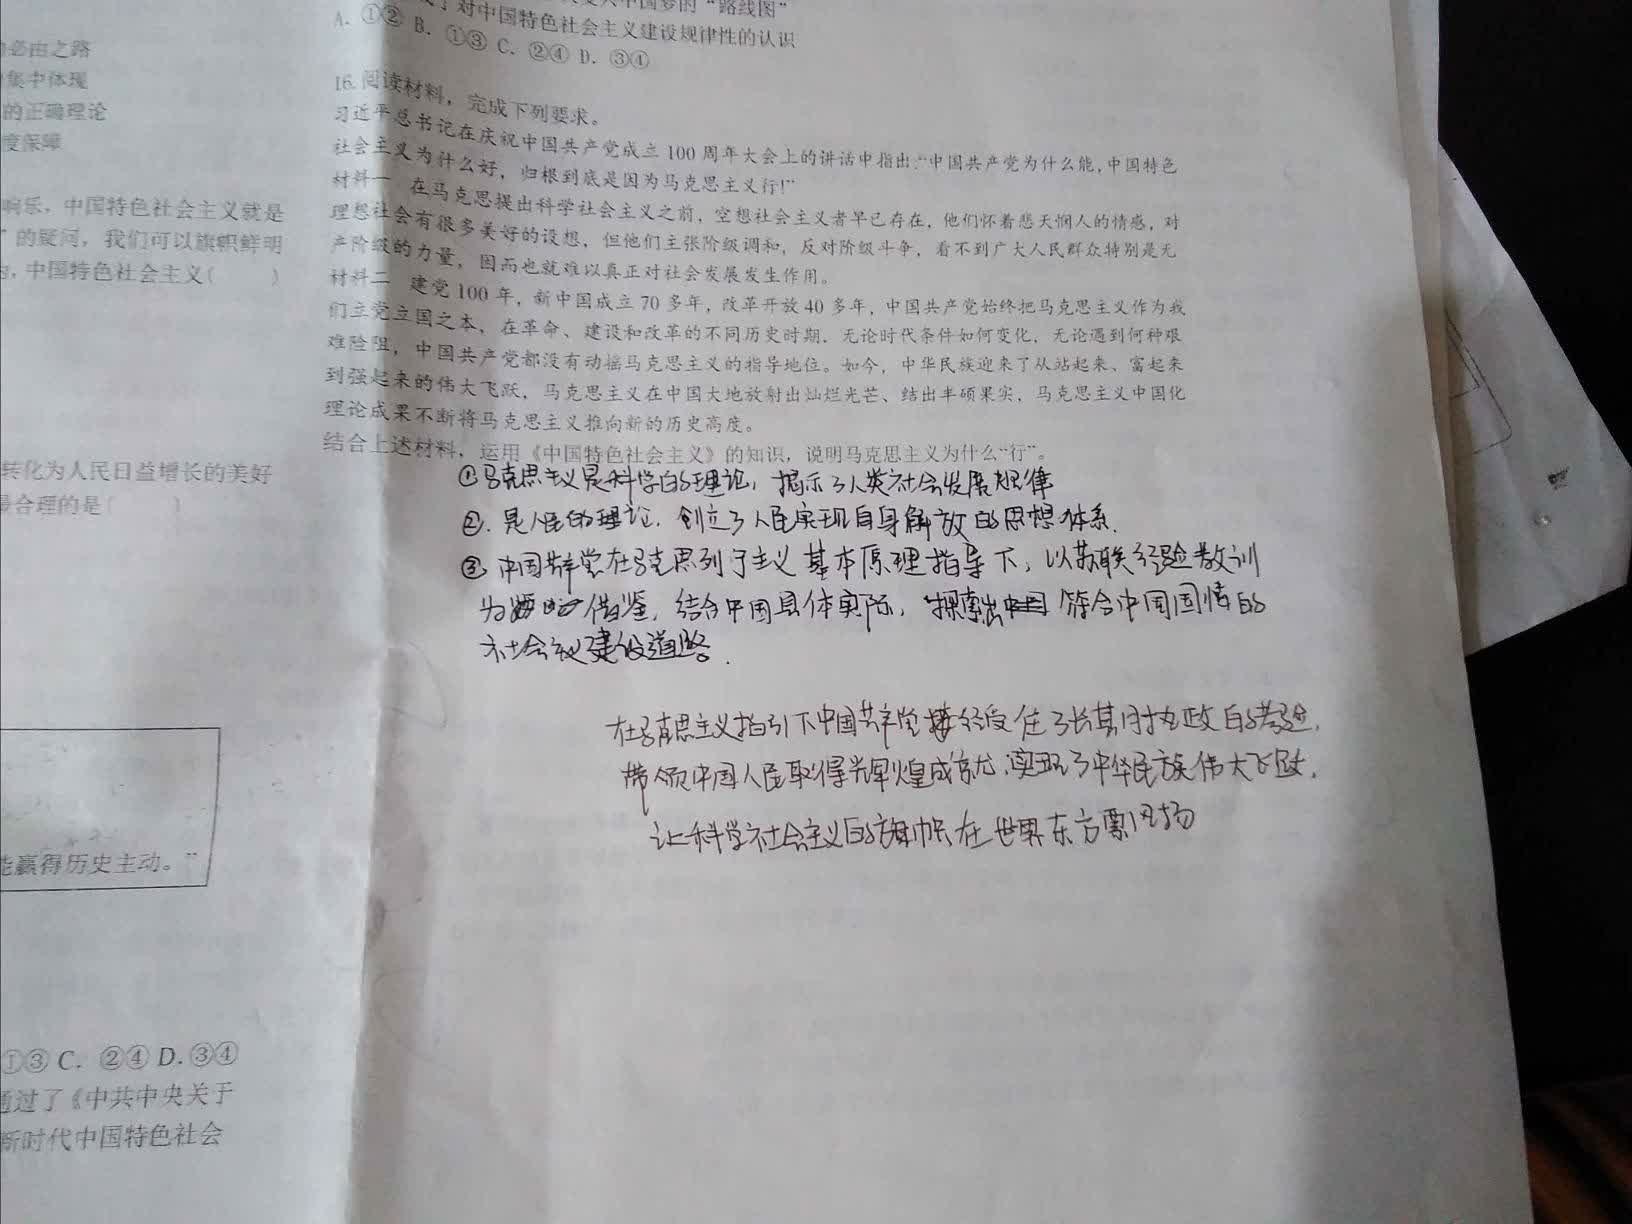 必由之路
集中体现
的正确理论
度保障
响乐，中国特色社会主义就是
”的疑问，我们可以旗帜鲜明
，中国特色社会主义（ ）
转化为人民日益增长的美好
最合理的是（ ）
能赢得历史主动。”
①③ C. ②④ D. ③④
通过了《中共中央关于
新时代中国特色社会
中国梦的“路线图”
了对中国特色社会主义建设规律性的认识
A. ①② B. ①③ C. ②④ D. ③④
16. 阅读材料，完成下列要求。
习近平总书记在庆祝中国共产党成立 100 周年大会上的讲话中指出：“中国共产党为什么能，中国特色
社会主义为什么好，归根到底是因为马克思主义行！”
材料一 在马克思提出科学社会主义之前，空想社会主义者早已存在，他们怀着悲天悯人的情感，对
理想社会有很多美好的设想，但他们主张阶级调和，反对阶级斗争，看不到广大人民群众特别是无
产阶级的力量，因而也就难以真正对社会发展发生作用。
材料二 建党 100 年，新中国成立 70 多年，改革开放 40 多年，中国共产党始终把马克思主义作为我
们立党立国之本，在革命、建设和改革的不同历史时期，无论时代条件如何变化，无论遇到何种艰
难险阻，中国共产党都没有动摇马克思主义的指导地位。如今，中华民族迎来了从站起来、富起来
到强起来的伟大飞跃，马克思主义在中国大地放射出灿烂光芒、结出丰硕果实，马克思主义中国化
理论成果不断将马克思主义推向新的历史高度。
结合上述材料，运用《中国特色社会主义》的知识，说明马克思主义为什么“行”。
①马克思主义是科学的理论，揭示了人类社会发展规律
②. 是人民的理论，创立了人民实现自身解放的思想体系.
③ 中国共产党在马克思列宁主义基本原理指导下，以苏联经验教训
为借鉴，结合中国具体实际，探索出符合中国国情的
社会主义建设道路.
在马克思主义指引下中国共产党经受住了长期执政的考验，
带领中国人民取得辉煌成就，实现了中华民族伟大飞跃，
让科学社会主义的旗帜在世界东方飘扬